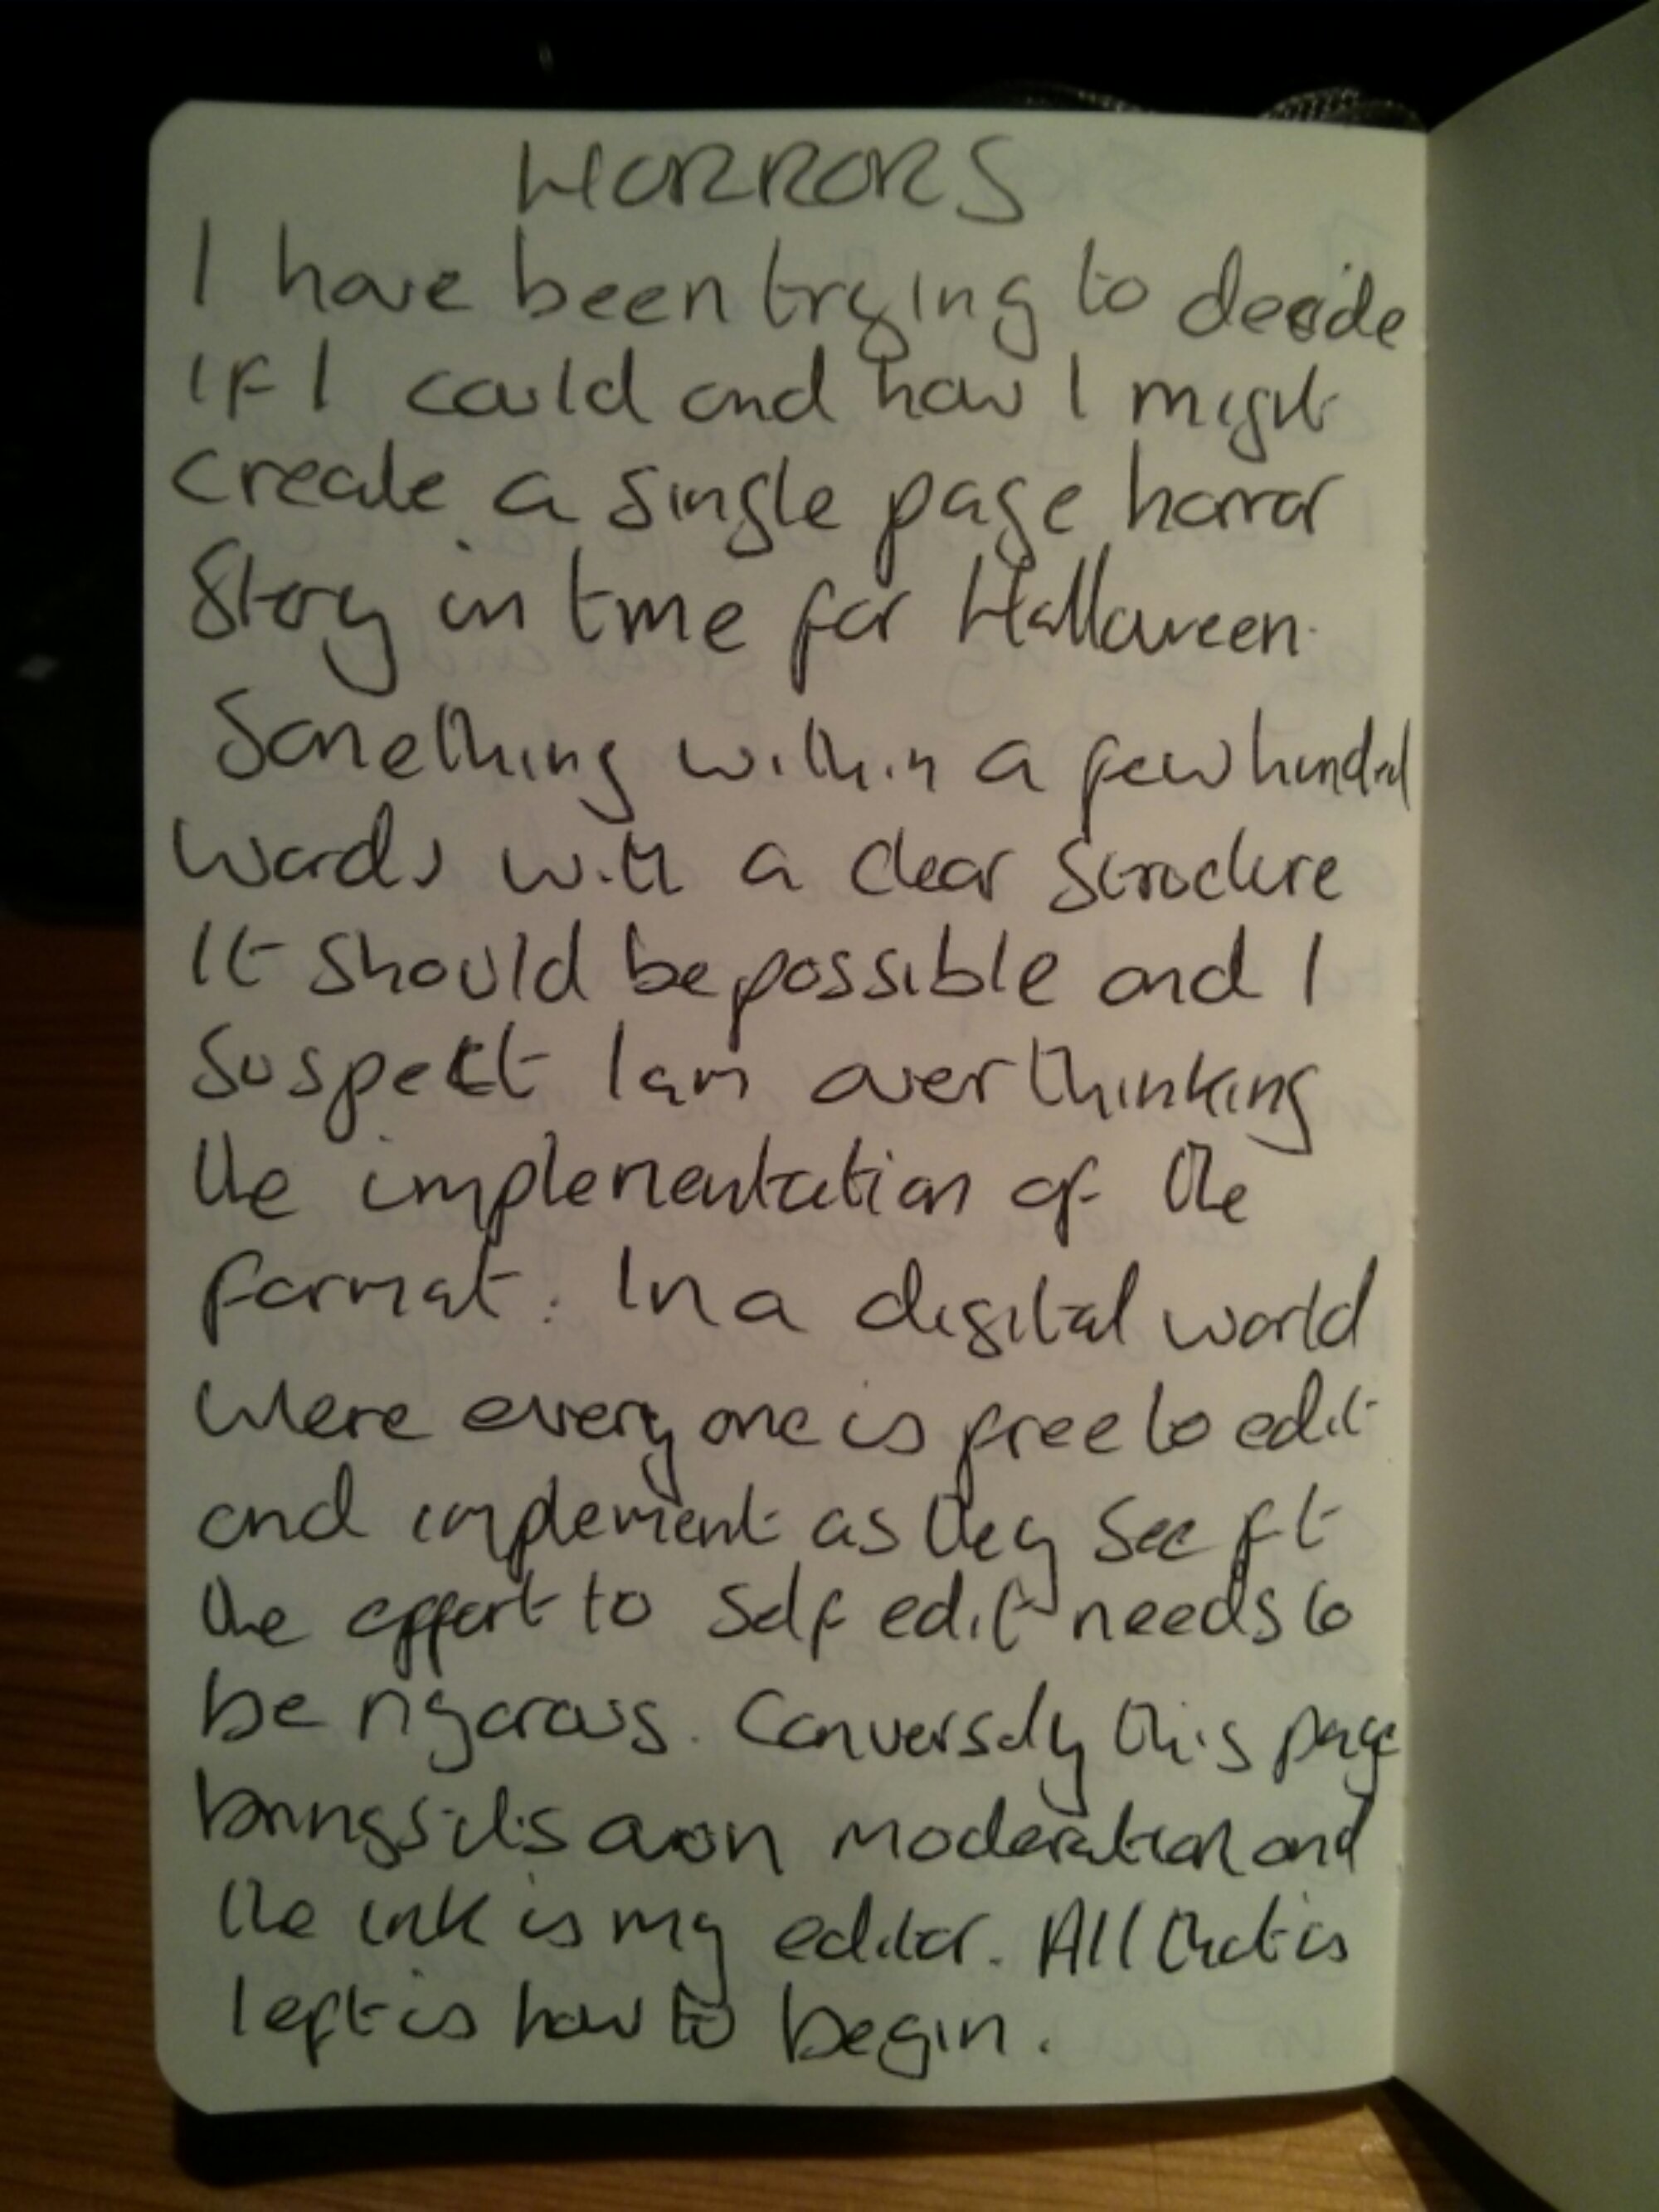 HORRORS
I have been trying to decide
If I could and how I might
create a single page horror
Story in time for Halloween.
Something within a few hundred
words with a clear structure
It should be possible and I
suspect I am over thinking
the implementation of the
format. In a digital world
where everyone is free to edit
and implement as they see fit
the effort to self edit needs to
be rigorous. Conversely this page
brings its own moderation and
the ink is my editor. All that is
left is how to begin.